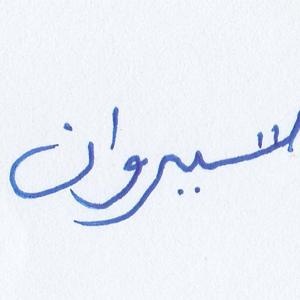 السيروان